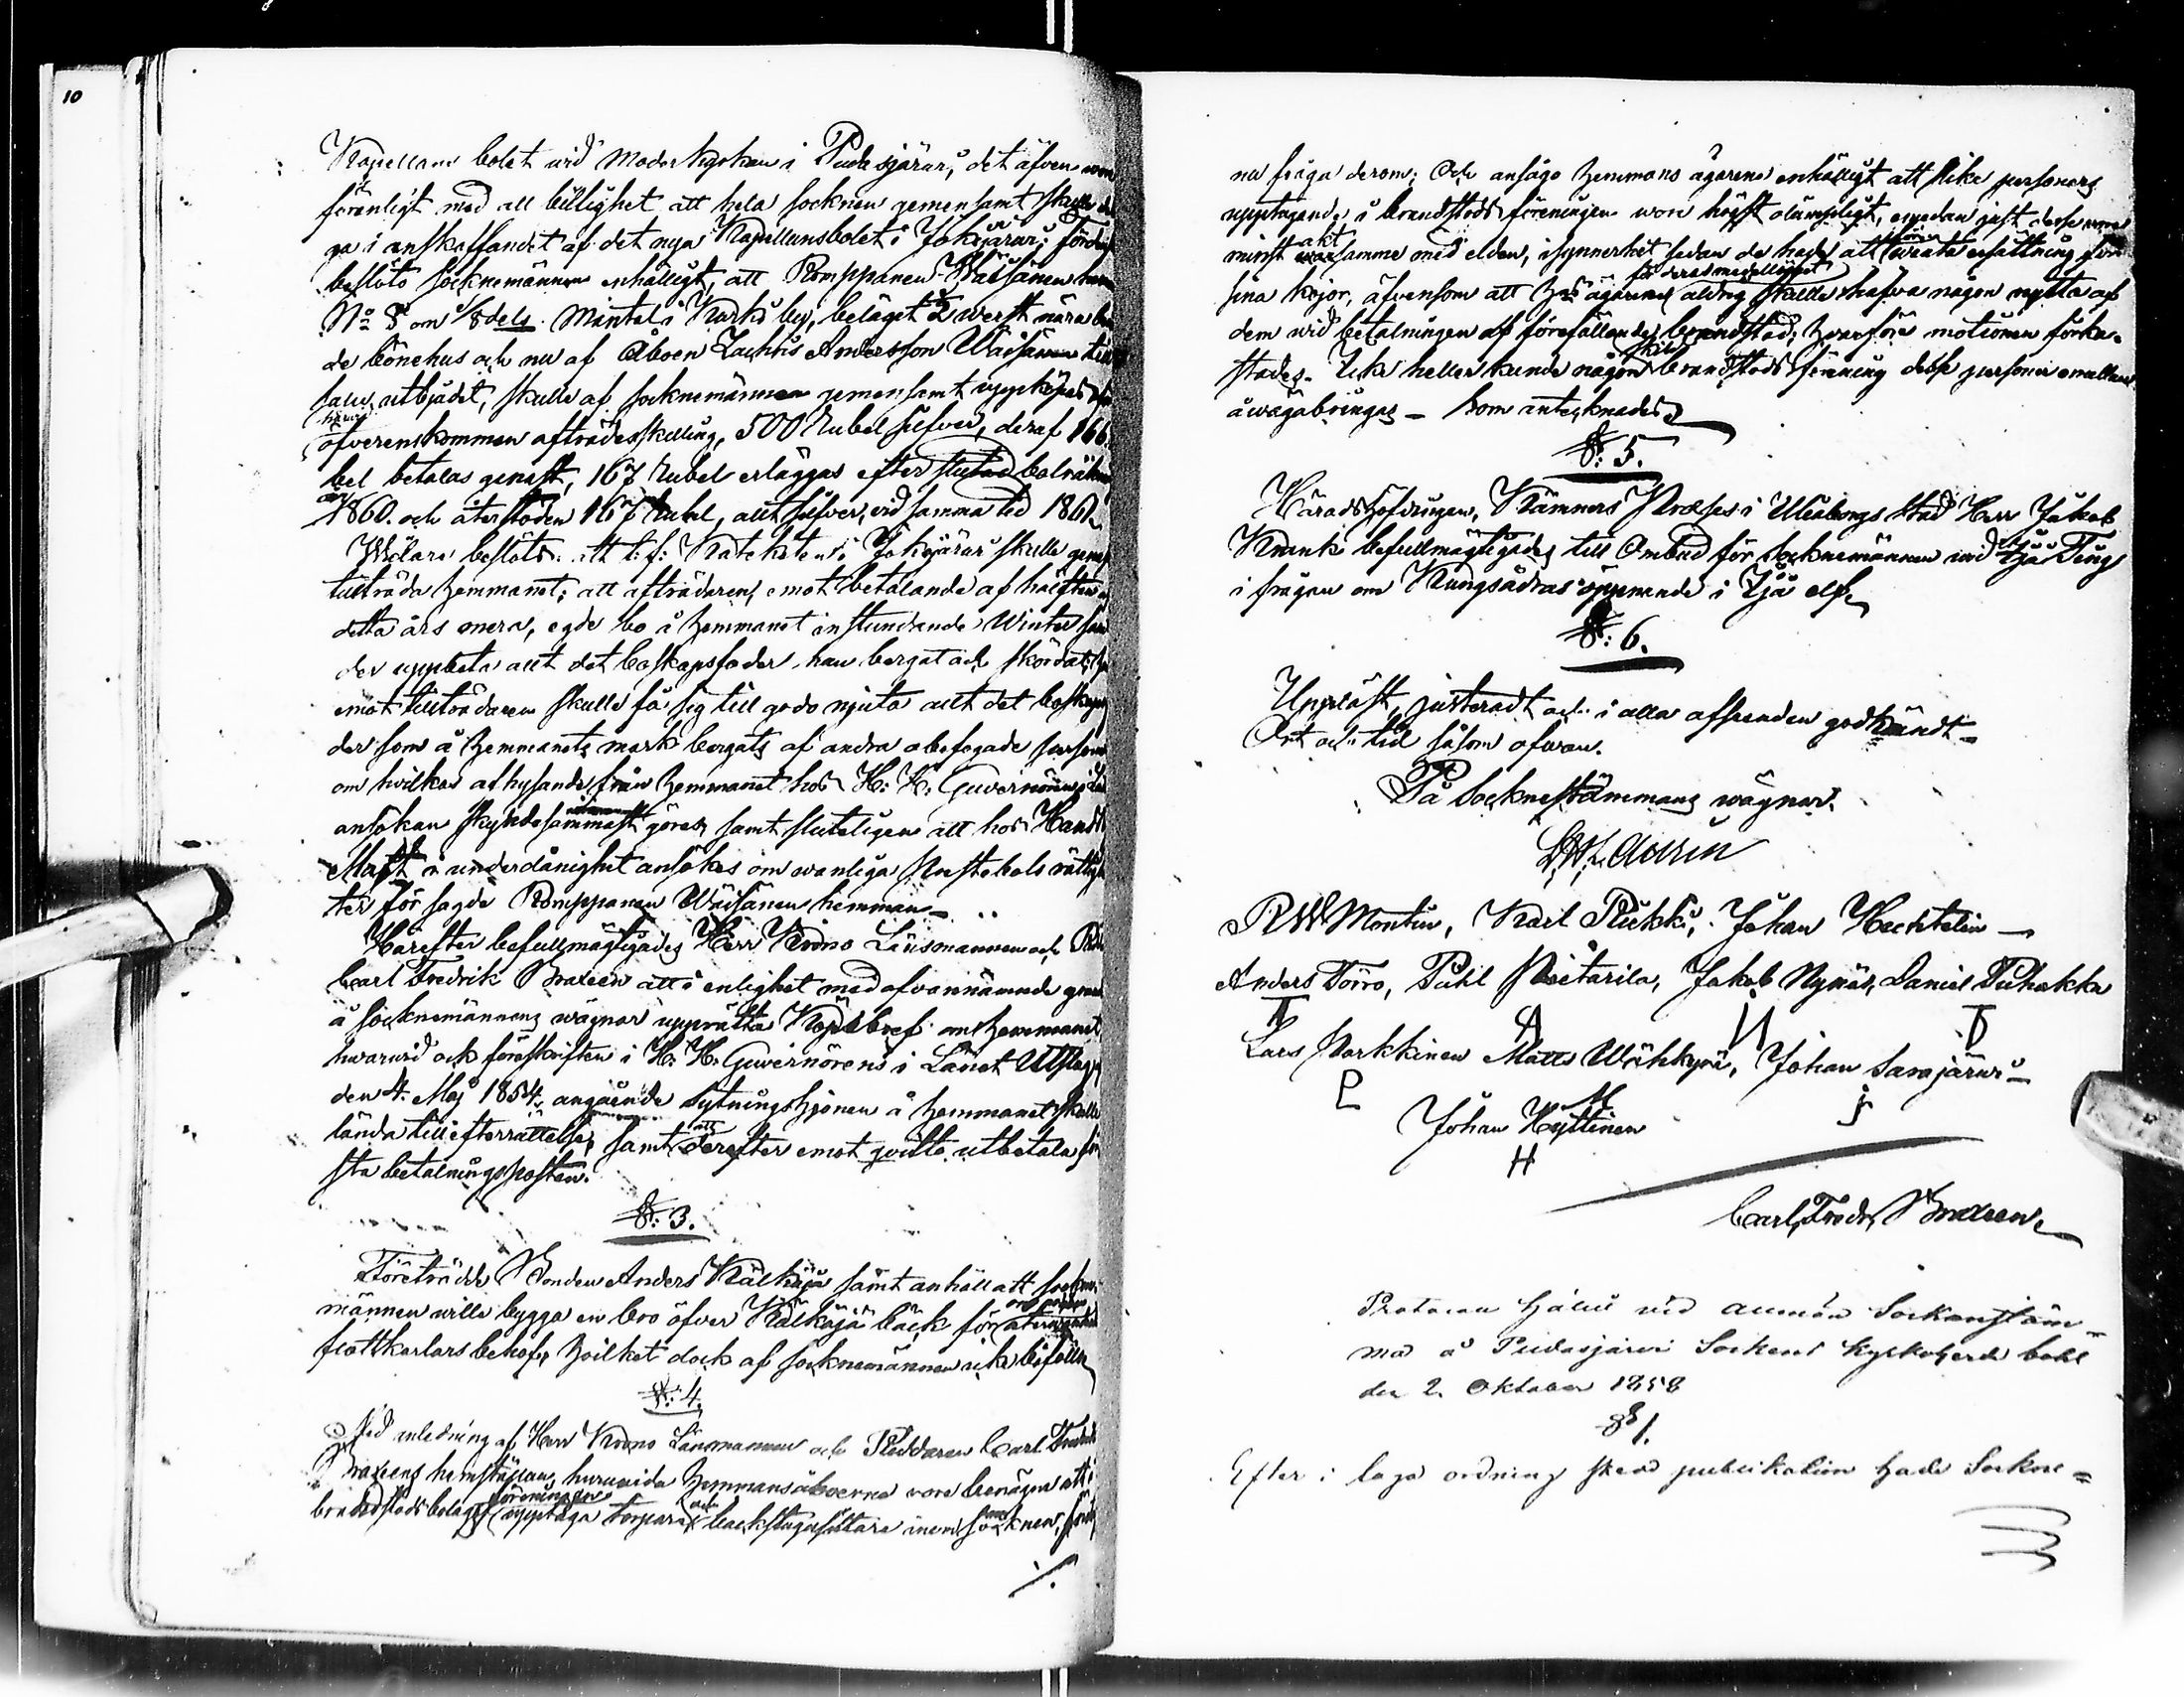 10
Kapellans bolet wid Moderkyrkan i Pudasjärwi, det äfven wore
förenligt med all billighet att hela socknen gemensamt skulle
ga i anskaffandet af det nya Kapellansbolet i Jokijärwi;
beslöto socknemännen enhälligt, att Romppanen Wäisänen
No 8 om 1/8 dels Mantal i Kurki by, beläget 1/2 werst nära
de bönehus och nu af Åboen Zachris Andersson Wäisänen till
salu utbjudet, skulle af socknemännen gemensamt uppköpas
öfverenskommen afträdesskilling, 500 Rubel silfver, deraf 166
bel betalas genast, 167 Rubel erläggas efter slutad
1860. och återstoden 167 Rubel, allt silfver, vid samma tid 1861.
Widare beslöts: att t: f: Katekéten i Jokijärwi skulle genast
tillträda hemmanet; att afträdaren, emot betalande af hälften
detta års onera, egde bo å hemmanet instundande Winter
der uppbeta allt det boskapsfoder han bergat och skördat,
emot tillträdaren skulle få sig till godo njuta allt det
der som å hemmanets mark bergats af andra obefogade
om hvilkas afhysande från hemmanet hos H: H: Guvernören i
ansökan skyndesammast göres, samt sluteligen att hos Hans
Majt i underdånighet ansökes om wanliga
ter för sagde Romppanen Wäisänen hemman.
Härefter befullmägtigades Herr Krono Länsmannen och
Carl Fredrik Braxen att i enlighet med ofvannämnde
å socknemännens wägnar upprätta Köpebref om hemmanet
hwarwid och föreskriften i H: H: Guvernörens i Länet Utslag
den 4. Maj 1854. angående Sytningshjonen å hemmanet skulle
lända till efterrättelse, samt att derefter emot qvitto utbetala
sta betalningsposten.
§: 3.
Företrädde Bonden Anders Kälkäjä samt anhöll att
männen wille bygga en bro öfver Kälkäjä bäck för
flottkarlars behof, hvilket dock af socknemännen icke bifölls
§: 4.
Vid anledning af Herr Krono Länsmannen och Räddaren Carl
Braxens hemställan, huruvida Hemmansåboerne vore benägne att i
brandstodsbolaget föreningen upptaga torpare och backstugusittare inom socknen,
na fråga derom; Och ansågo hemmans ägarene enhälligt att slike personers
upptagande i brandstods föreningen wore högst olämpligt, emedan just desse
minst aktsamme med elden, isynnerhet sedan de hade att wänta ersättning för
sina kojor, äfvensom att hemmansägarene för deras medellöshet aldrig skulle hafva någon nytta af
dem wid betalningen af förefallande brandstod; hvarföre motionen förka-
stades. Icke heller kunde någon skild brandstods förening desse personer emellan
åwägabringas – som antecknades
§: 5.
Häradshöfdingen, Kämners Præses i Uleåborgs stad Herr Jakob
Krank befullmägtigades till Ombud för socknemännen wid Ijå Ting
i frågan om Kungsådras öppnande i Ijå elf.
§: 6.
Uppläst, justeradt och i alla afseenden godkändt–
Ort och tid såsom ofwan.
På Socknestämmans wägnar.
RW Montin, Karl Riekki, Johan Hechtelin –
Anders Törrö, Påhl Pietarila, Jakob Nynäs, Daniel Puhakka
Lars Parkkinen Matts Wähkyrä, Johan Sarajärwi –
P M J
Johan Hyttinen
H
Carl Fredr Braxen
Protocoll hållit vid allmän Sockenstäm-
ma å Pudasjärvi Sockens Kyrkoherde bohl
den 2. Oktober 1858
§ 1.
Efter i laga ordning skedd publikation hade Sockne=